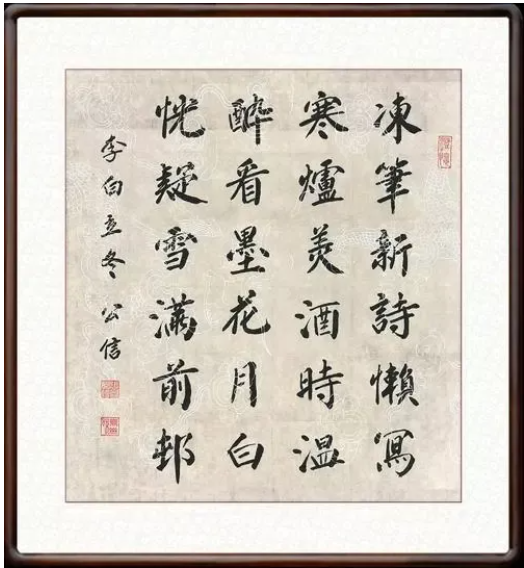 凍筆新詩懶冩
寒爐羙酒時温
醉看墨花月白
恍疑雪滿前邨
李白立冬 公信